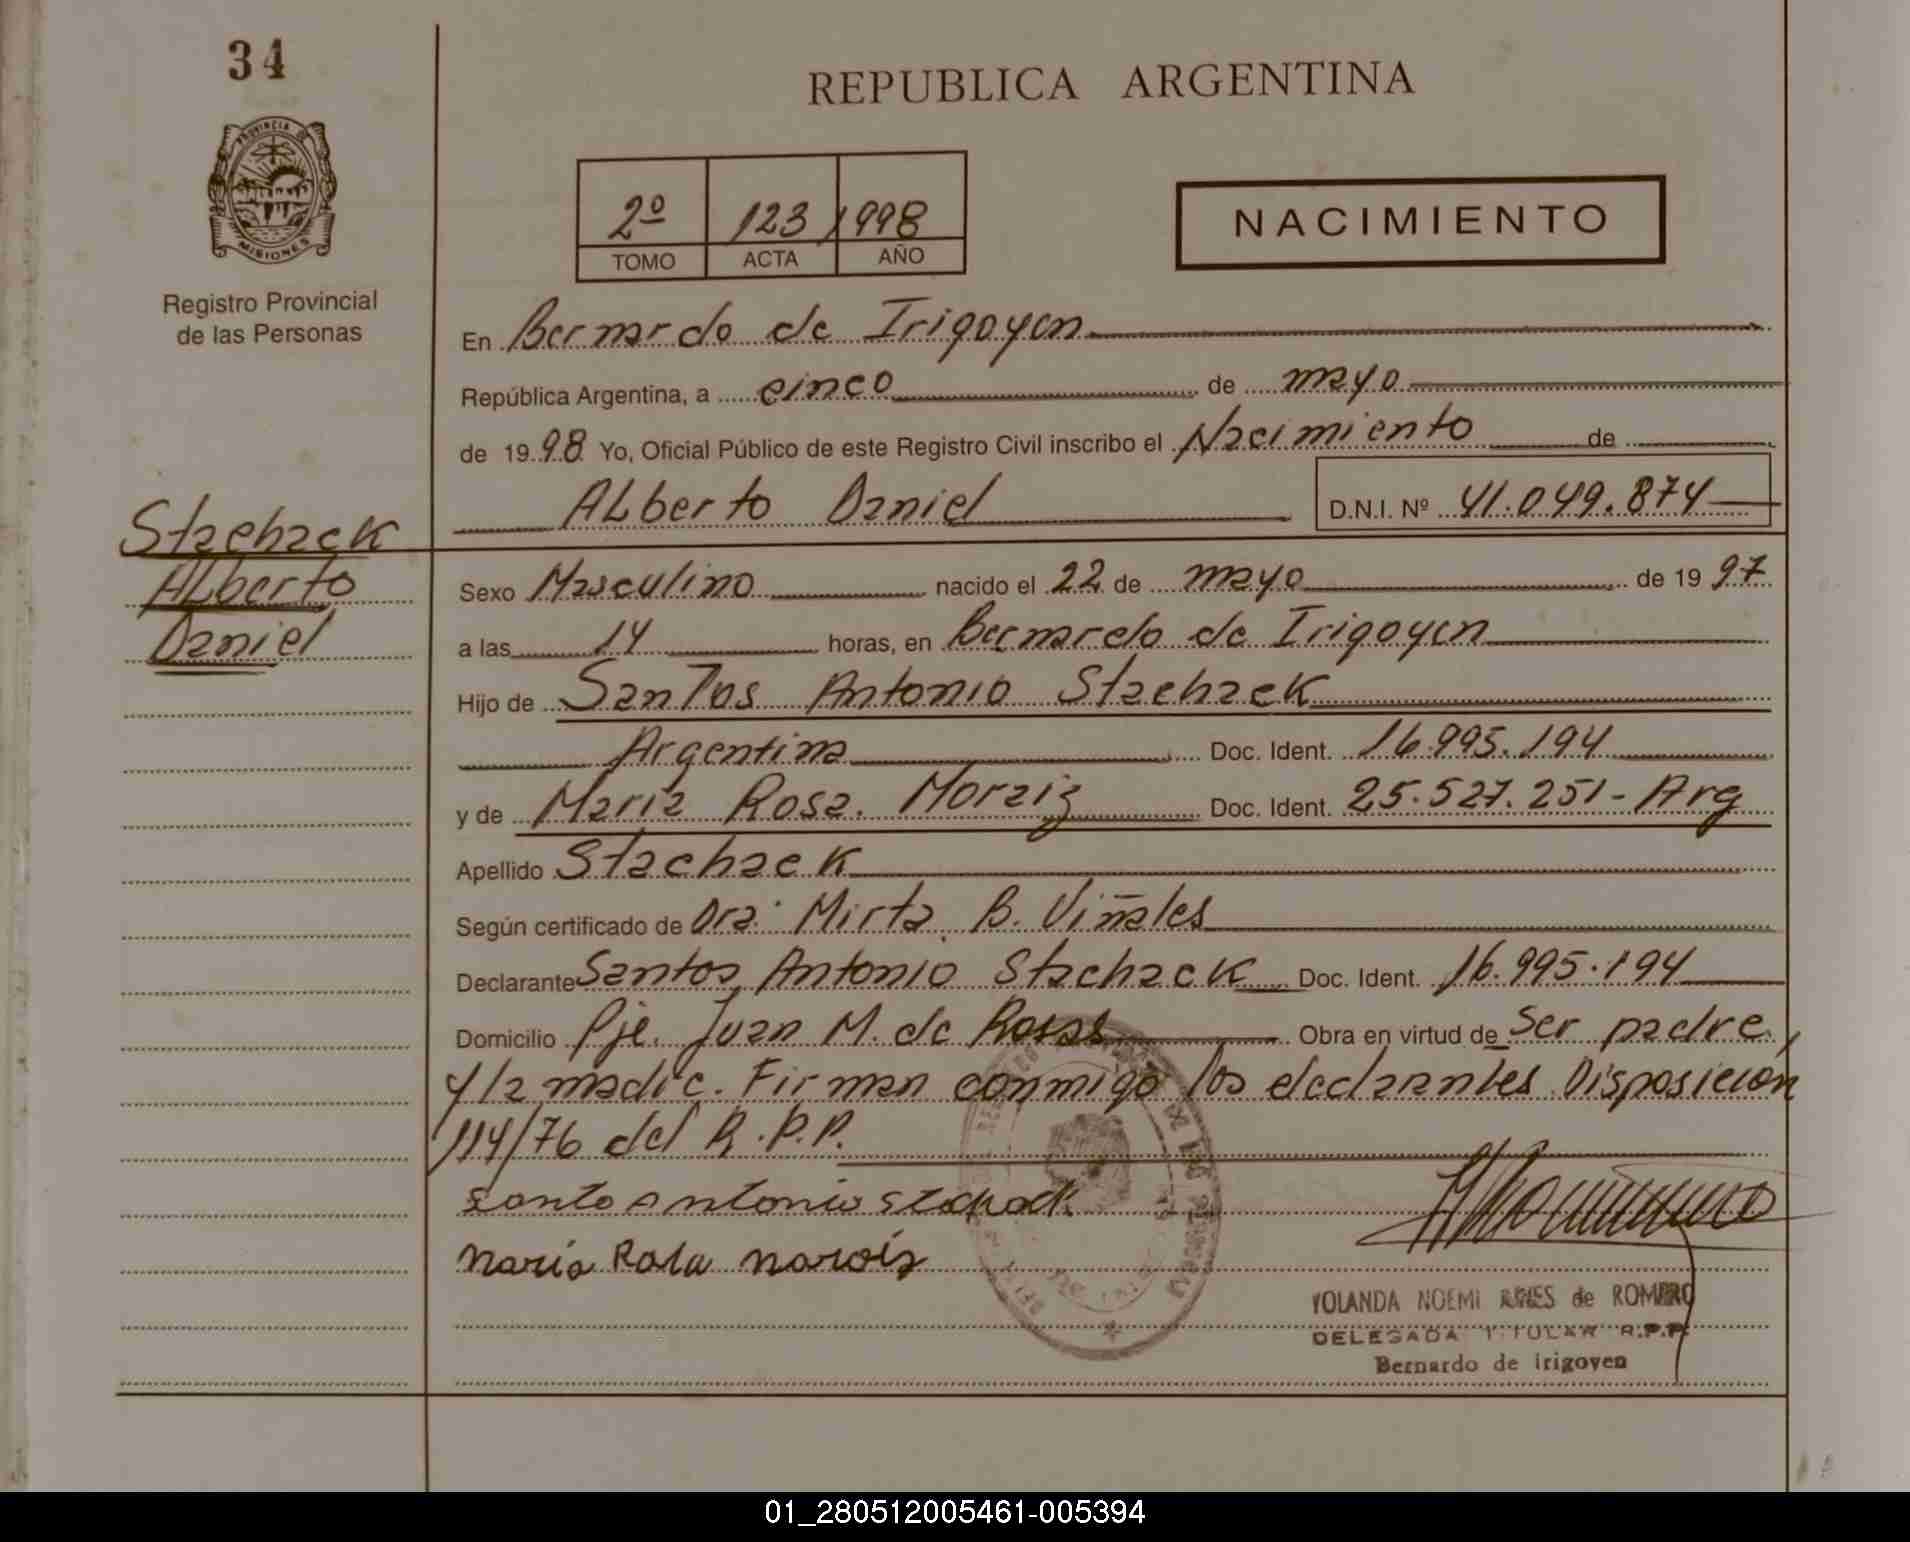 34
REPUBLICA ARGENTINA
PROVINCIA DE
MISIONES
Registro Provincial
de las Personas
2º 123 1998
TOMO ACTA AÑO
NACIMIENTO
En Bernardo de Irigoyen
República Argentina, a cinco de mayo
de 1998 Yo, Oficial Público de este Registro Civil inscribo el Nacimiento de
Alberto Daniel D.N.I. Nº 41.049.874
Stachack
Alberto
Daniel
Sexo Masculino nacido el 22 de mayo de 1997
a las 14 horas, en Bernardo de Irigoyen
Hijo de Santos Antonio Stachack
Argentina Doc. Ident. 16.995.194
y de María Rosa Moraiz Doc. Ident. 25.527.251 - Arg
Apellido Stachack
Según certificado de Dra. Mirta B. Viñales
Declarante Santos Antonio Stachack Doc. Ident. 16.995.194
Domicilio Pje. Juan M. de Rosas Obra en virtud de Ser padre,
y la madre. Firman conmigo los declarantes Disposición
114/76 del R.P.P.
Santo Antonio Stachack
María Rosa Moraiz
YOLANDA NOEMI de ROMERO
DELEGADA TITULAR R.P.P.
Bernardo de Irigoyen
01_280512005461-005394